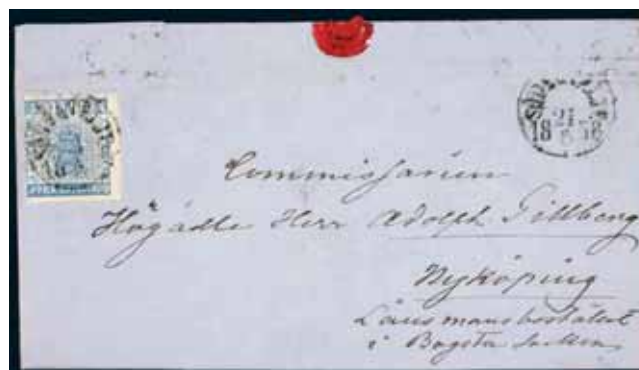 21
18 58
6
Commissarien
Högädle Herr Adolph Tillberg
Nyköping
Länsmansbostället
i Bogsta Socken